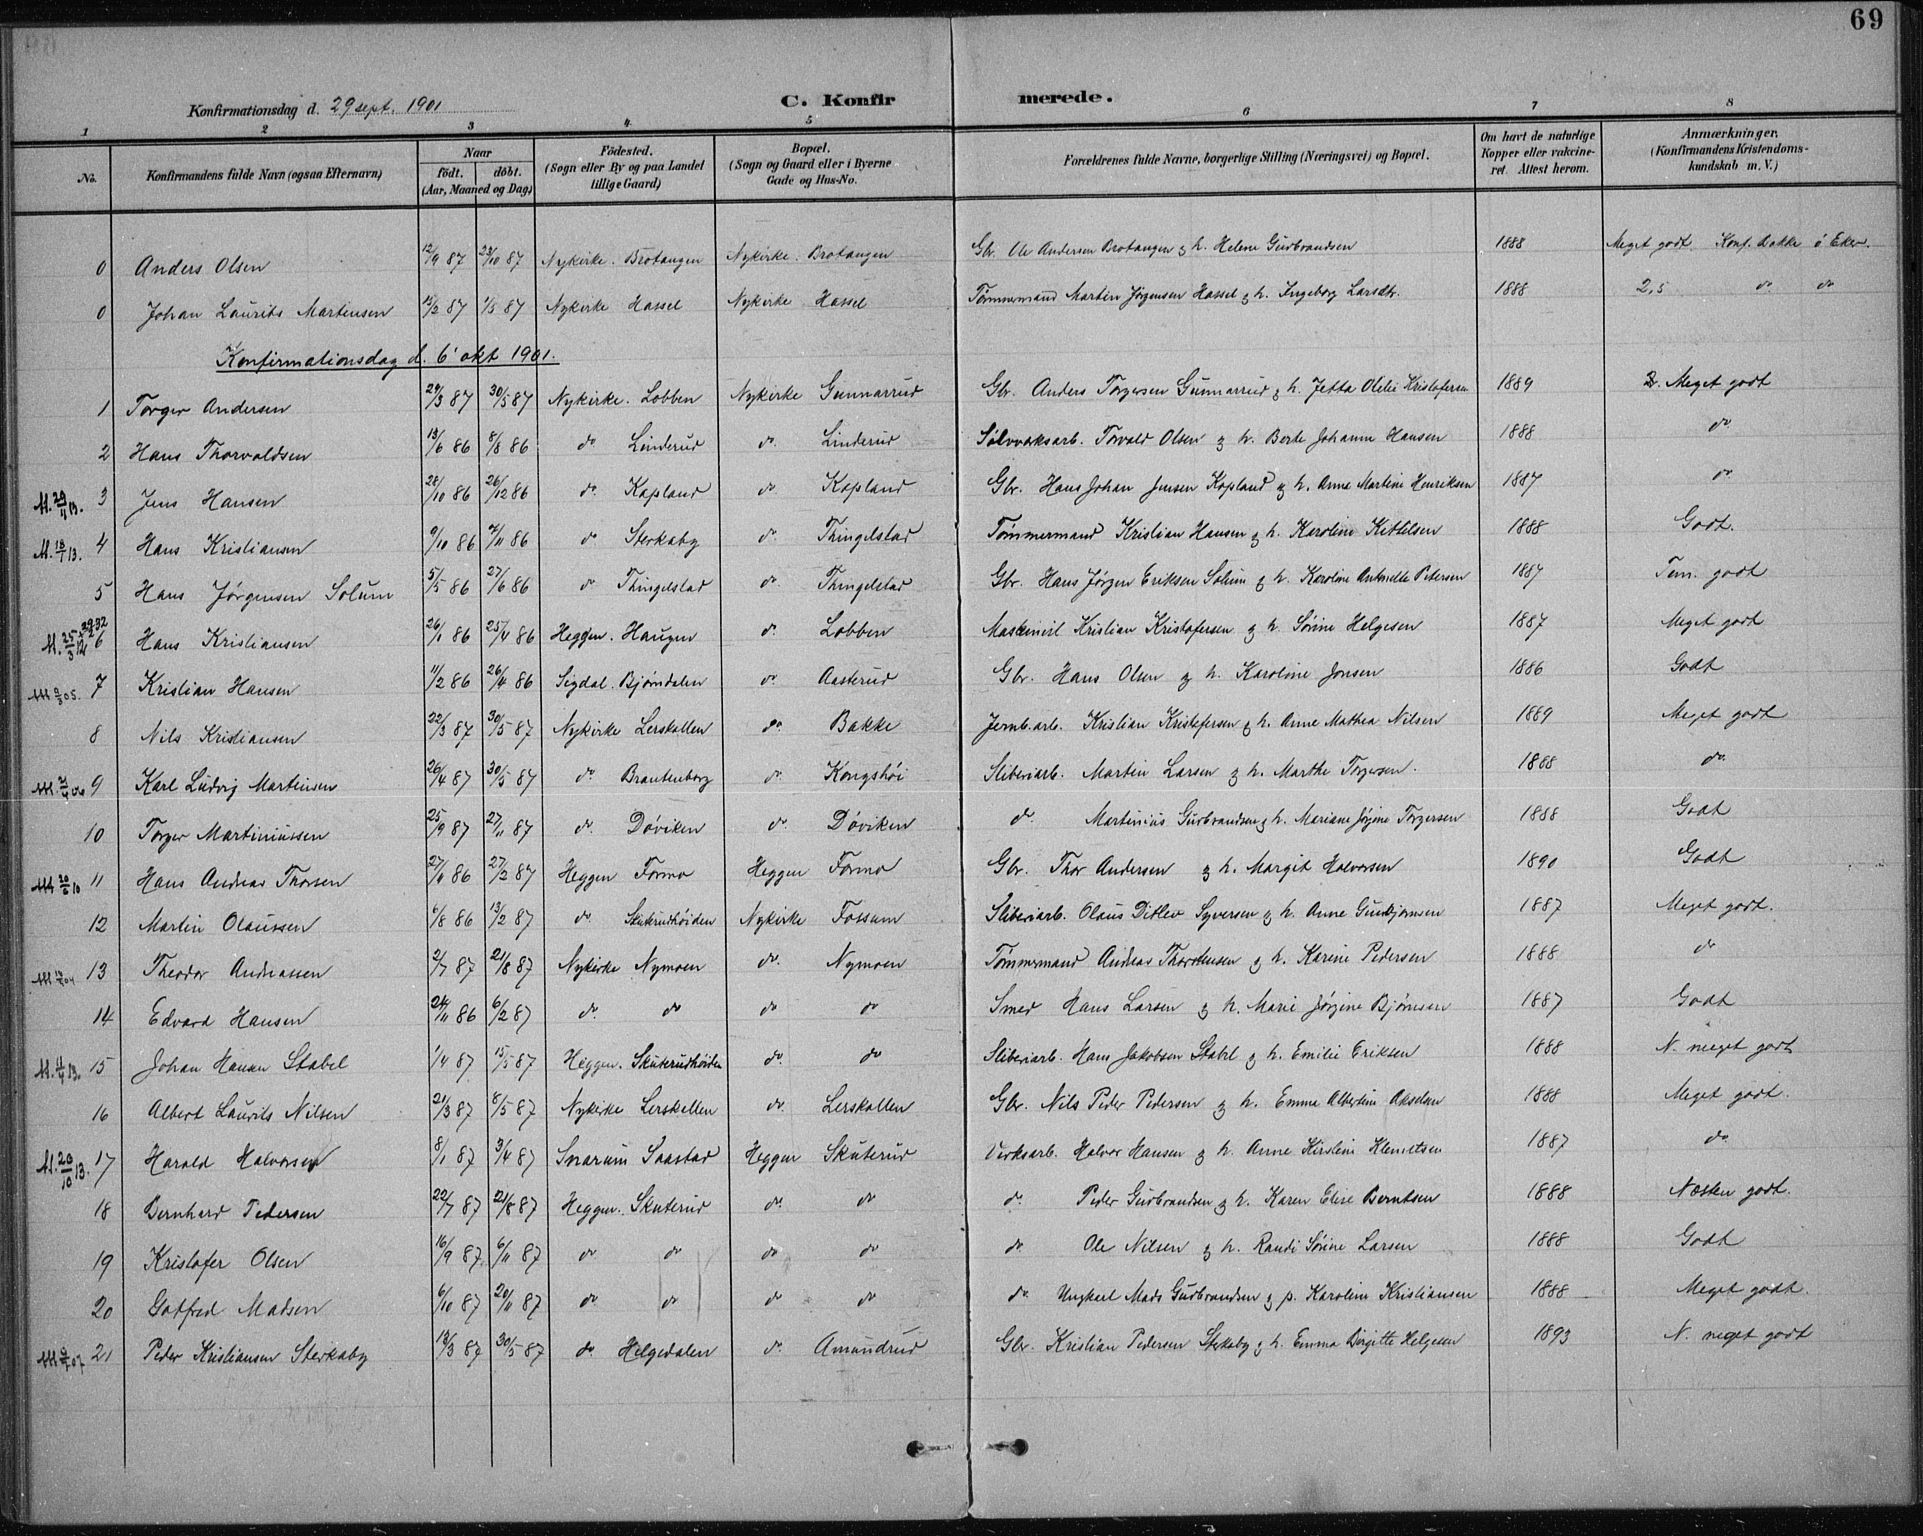 69
Konfirmationsdag d. 29 sept. 1901 C. Konfirmerede.
1 2 3 4 5 6 7 8
No. Konfirmandens fulde Navn (ogsaa Efternavn) Naar födt. döbt. (Aar, Maaned og Dag) Födested. (Sogn eller By og paa Landet tillige Gaard) Bopæl. (Sogn og Gaard eller i Byerne Gade og Hus-No. Forældrenes fulde Navne, borgerlige Stilling (Næringsvei) og Bopæl. Om havt de naturlige Kopper eller vakcineret. Attest herom. Anmærkninger. (Konfirmandens Kristendomskundskab m. V.)
0 Anders Olsen 12/9 87 23/10 87 Nykirke. Brotangen Nykirke. Brotangen Gbr. Ole Andersen Brotangen g h. Helene Gudbrandsen 1888 Meget godt. Konf. Bakke ö Eker.
0 Johan Laurits Martensen 13/2 87 1/5 87 Nykirke Hassel Nykirke Hassel Tømmermand Martin Jørgensen Hassel g h. Ingeborg Larsdtr. 1888 2,5 do do
Konfirmationsdag d. 6' okt 1901.
1 Torger Andersen 29/3 87 30/5 87 Nykirke. Lobben Nykirke Gunnarrud Gbr. Anders Torgersen Gunnarrud g h. Jetta Olelie Kristofersen 1889 2. Meget godt
2 Hans Thorvaldsen 13/6 86 8/8 86 do Linderud do. Linderud Sølvværksarb. Torvald Olsen g h. Berte Johanne Hansen 1888 do.
M. 29/11 13. 3 Jens Hansen 28/10 86 26/12 86 do. Kopland do. Kopland Gbr. Hans Johan Jensen Kopland g h. Anne Martine Henriksen 1887 do
M. 18/1 13. 4 Hans Kristiansen 9/10 86 7/11 86 do Sterkaby do. Thingelstad Tømmermand Kristian Hansen g h. Karoline Kittelsen 1888 Godt.
5 Hans Jørgensen Solum 5/5 86 27/6 86 do Thingelstad do. Thingelstad Gbr. Hans Jørgen Eriksen Solum g h. Karoline Antonette Petersen 1887 Tem. godt
6 Hans Kristiansen 26/1 86 25/4 86 Heggen. Haugen do. Lobben Maskinist Kristian Kristofersen g h. Sørine Helgesen 1887 Meget godt
7 Kristian Hansen 11/2 86 26/4 86 Sigdal. Bjørndalen do. Aasterud Gbr. Hans Olsen g h. Karoline Jonsen 1886 Godt
8 Nils Kristiansen 22/3 87 30/5 87 Nykirke Lerskallen do. Bakke Jernb.arb. Kristian Kristofersen g h. Anne Mathea Nilsen 1889 Meget godt
9 Karl Ludvig Martinsen 26/4 87 30/5 87 do. Brantenborg do. Kongshöi Sliberiarb. Martin Larsen g h. Marthe Torgersen. 1888 do.
10 Torger Martiniussen 25/9 87 27/11 87 do. Döviken do. Döviken do. Martinius Gudbrandsen g h. Mariane Jörgine Torgersen 1888 Godt
11 Hans Andreas Thorsen 27/11 86 27/2 87 Heggen Formo Heggen Formo Gbr. Thor Andersen g h. Margit Halvorsen 1890 Godt
12 Martin Olaussen 6/8 86 13/2 87 do. Skuterudhöiden Nykirke Fossum Sliberiarb. Olaus Ditlev Syversen g h. Anne Gunbjørnsen 1887 Meget godt.
13 Theodor Andreassen 2/7 87 21/8 87 Nykirke Nymoen do. Nymoen Tømmermand Andreas Thorstensen g h. Karine Pedersen 1888 do
14 Edvard Hansen 24/11 86 6/2 87 do. do do do Smed Hans Larsen g h. Marie Jørgine Bjørnsen 1887 Godt
15 Johan Hansen Stabel 1/4 87 15/5 87 Heggen. Skuterudhöiden do. do Sliberiarb. Hans Jakobsen Stabel g h. Emilie Eriksen 1888 N. meget godt
16 Albert Laurits Nilsen 21/3 87 8/5 87 Nykirke Lerskallen do. Lerskallen Gbr. Nils Peder Pedersen g h. Emma Albertine Akselsen 1888 Meget godt.
M. 20/10 13. 17 Harald Halvorsen 8/1 87 3/4 87 Snarum Saastad Heggen Skuterud Verksarb. Halvor Hansen g h. Anne Kirstine Klemetsen 1887 do
18 Bernhard Pedersen 22/7 87 21/8 87 Heggen. Skuterud do. do do. Peder Gudbrandsen g h. Karen Elise Berntsen 1888 Næsten godt.
19 Kristofer Olsen 16/9 87 6/11 87 do do do do do. Ole Nilsen g h. Randi Sörine Larsen 1888 Godt
20 Gotfred Madsen 6/10 87 20/11 87 do do do do do. Ungkarl Mads Gudbrandsen g p. Karoline Kristiansen 1888 Meget godt.
21 Peder Kristiansen Sterkaby 13/3 87 30/5 87 do. Helgedalen do. Amundrud Gbr. Kristian Pedersen Sterkaby g h. Emma Birgitte Helgesen 1893 N. meget godt